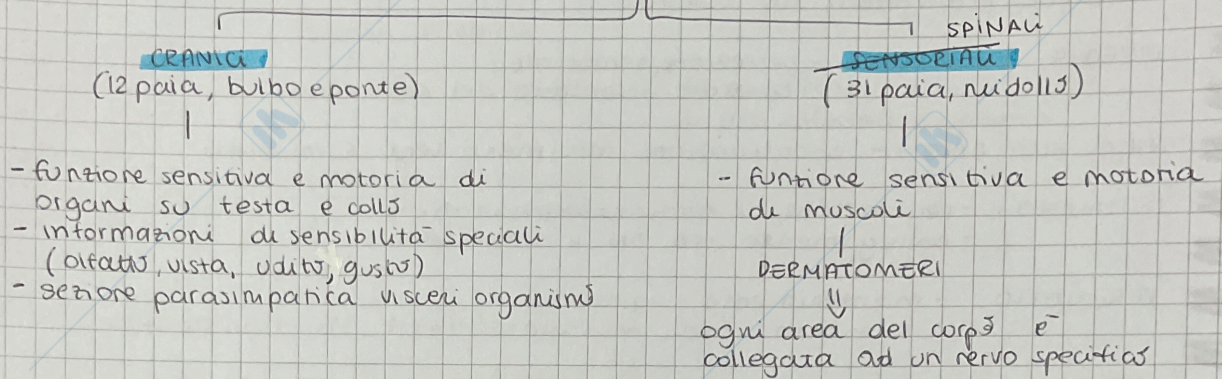 CRANICI
(12 paia, bulbo e ponte)
- funzione sensitiva e motoria di
organi su testa e collo
- informazioni di sensibilità speciali
(olfatto, vista, udito, gusto)
- sezione parasimpatica visceri organismo
SPINALI
SENSORIALI
(31 paia, midollo)
- funzione sensitiva e motoria
di muscoli
DERMATOMERI
ogni area del corpo è
collegata ad un nervo specifico